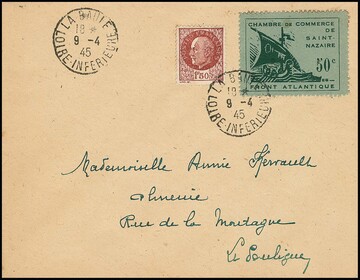 LA BAULE
18 *
9 - 4
45
LOIRE-INFÉRIEURE
1F50
CHAMBRE DE COMMERCE
DE
SAINT-
NAZAIRE
50c
FRONT ATLANTIQUE
LA BAULE
18 *
9 - 4
45
LOIRE-INFÉRIEURE
Mademoiselle Annie Kervault
Rue de la Montagne
Le Pouliguen